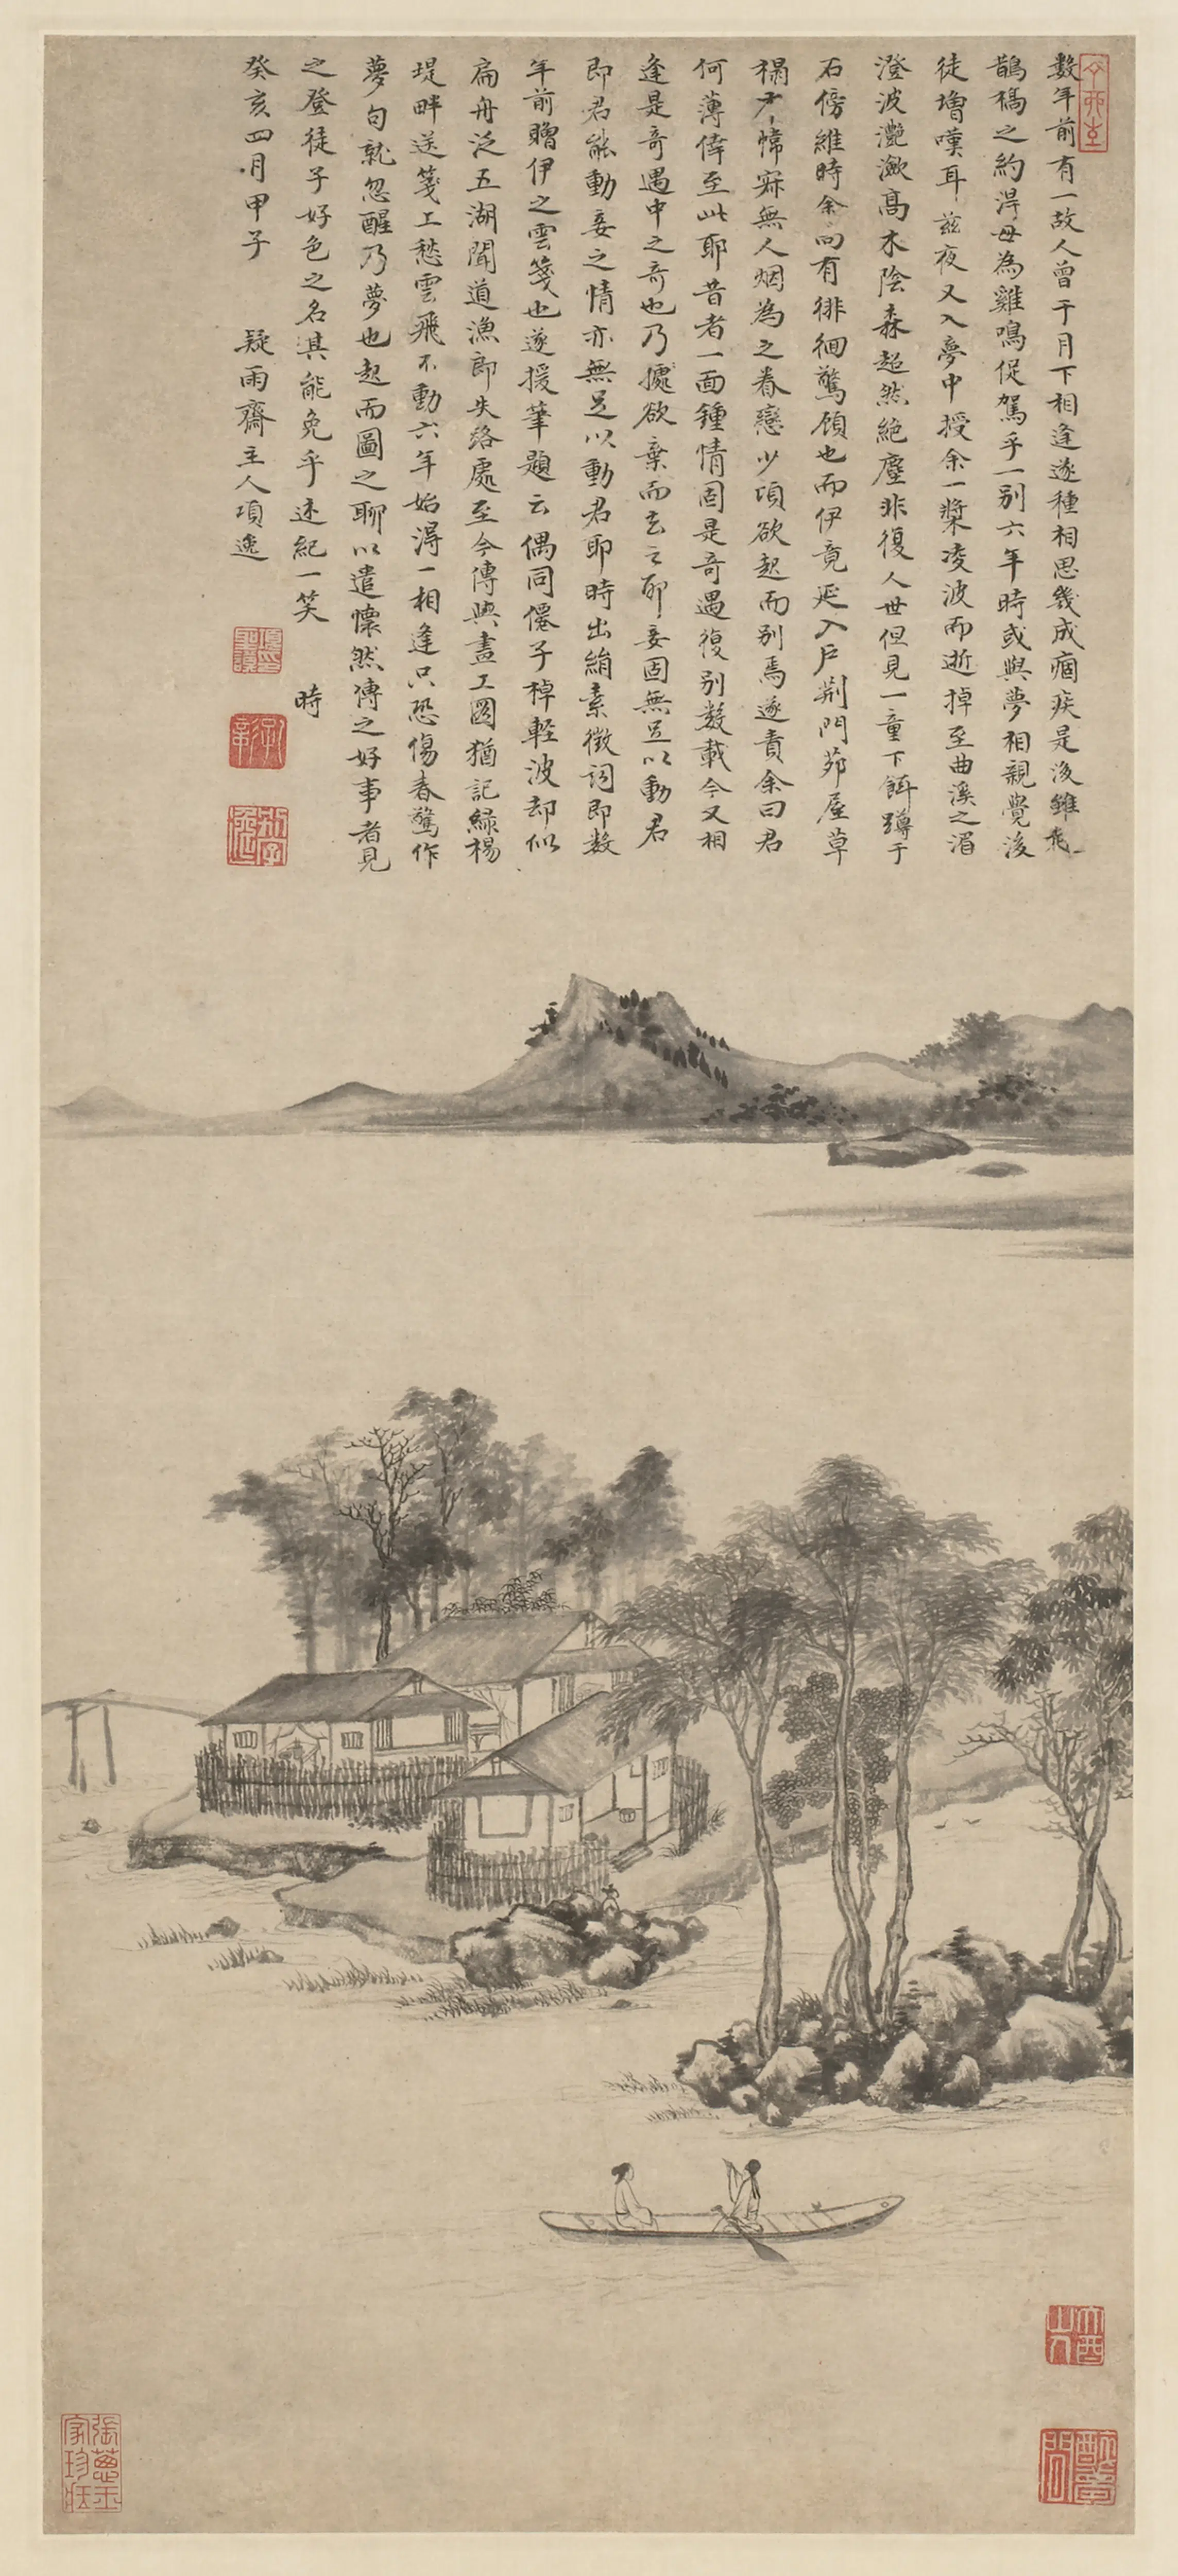 數年前有一故人曾于月下相逢遂種相思幾成痼疾是後雖飛
鵲橋之約淂毋為雞鳴促駕乎一別六年時或與夢相親覺後
徒增嘆耳茲夜又入夢中授余一槳凌波而逝掉至曲溪之湄
澄波灔瀲高木陰森超然絕塵非復人世但見一童下餌蹲于
石傍維時余向有徘徊驚顧也而伊竟延入戶荆門茆屋草
榻 幃寂無人烟為之眷戀少頃欲起而別焉遂責余曰君
何薄倖至此耶昔者一面鍾情固是奇遇復別數載今又相
逢是奇遇中之奇也乃 欲棄而去之耶妾固無足以動君
即君能動妾之情亦無足以動君耶時出絹素徵詞即數
年前贈伊之雲箋也遂援筆題云偶同僊子棹輕波却似
扁舟泛五湖聞道漁郎失路處至今傳與畫工圖猶記緑楊
堤畔送箋工愁雲飛不動六年始淂一相逢只恐傷春驚作
夢句就忽醒乃夢也起而圖之聊以遣懷然傳之好事者見
之登徒子好色之名其能免乎述紀一笑 時
癸亥四月甲子 疑雨齋主人項逸
張蔥玉
家珍藏